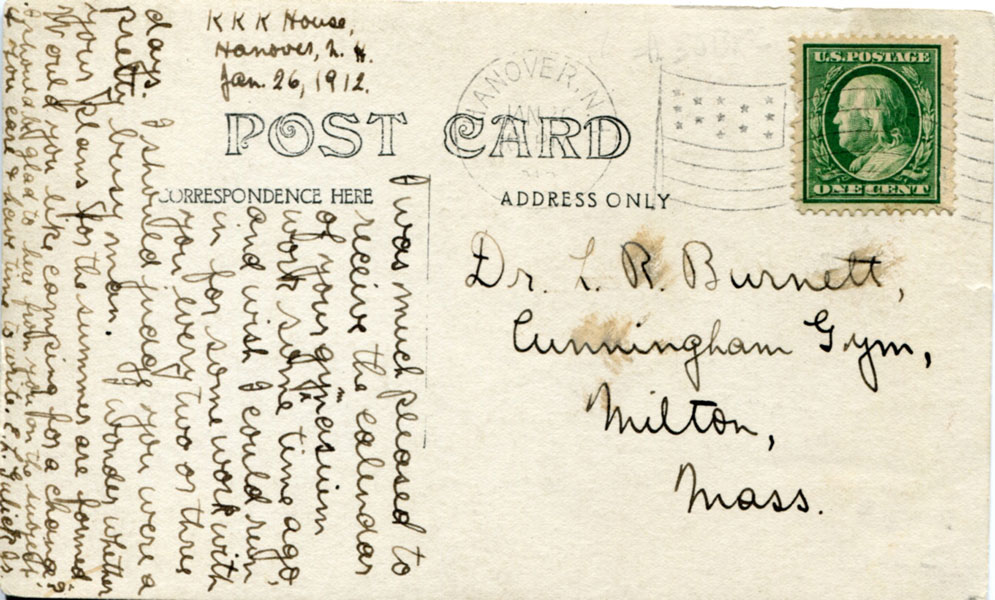 K K K House,
Hanover, N. H.
Jan. 26, 1912.
POST CARD
CORRESPONDENCE HERE
ADDRESS ONLY
HANOVER, N
JAN
U.S. POSTAGE
ONE CENT
Dr. L. R. Burnett,
Cunningham Gym,
Milton,
Mass.
I was much pleased to
receive the calendar
of your gymnasium
work some time ago,
and wish I could run
in for some work with
you every two or three
days. I should judge you were a
pretty busy man. I wonder whether
your plans for the summer are formed.
Would you like camping for a change?
I should be glad to hear from you on the subject
if you care & have time to write. E. L.